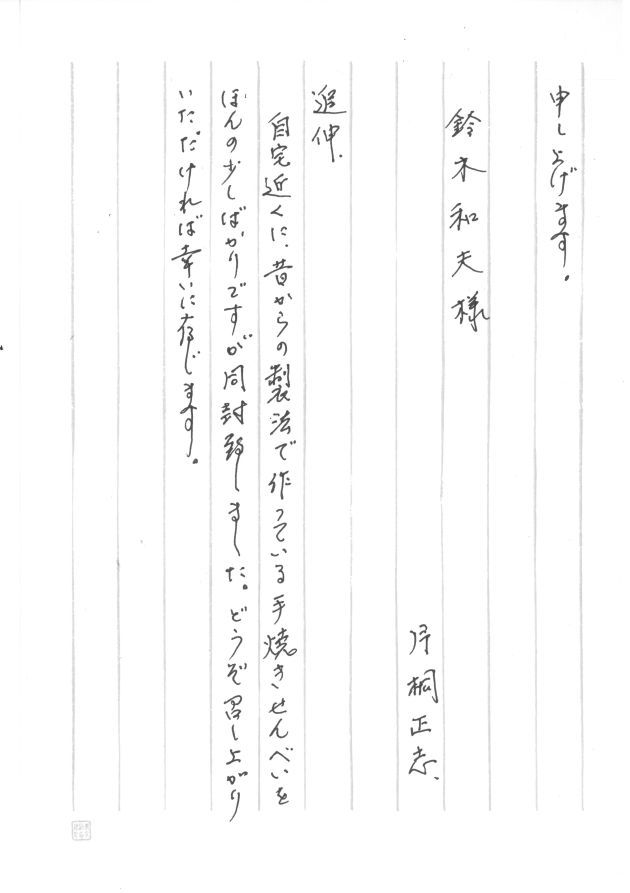 申し上げます。
鈴木和夫様
片桐正志
追伸.
自宅近くに、昔からの製法で作っている手焼きせんべいを
ほんの少しばかりですが同封致しました。どうぞ召し上がり
いただければ幸いに存じます。